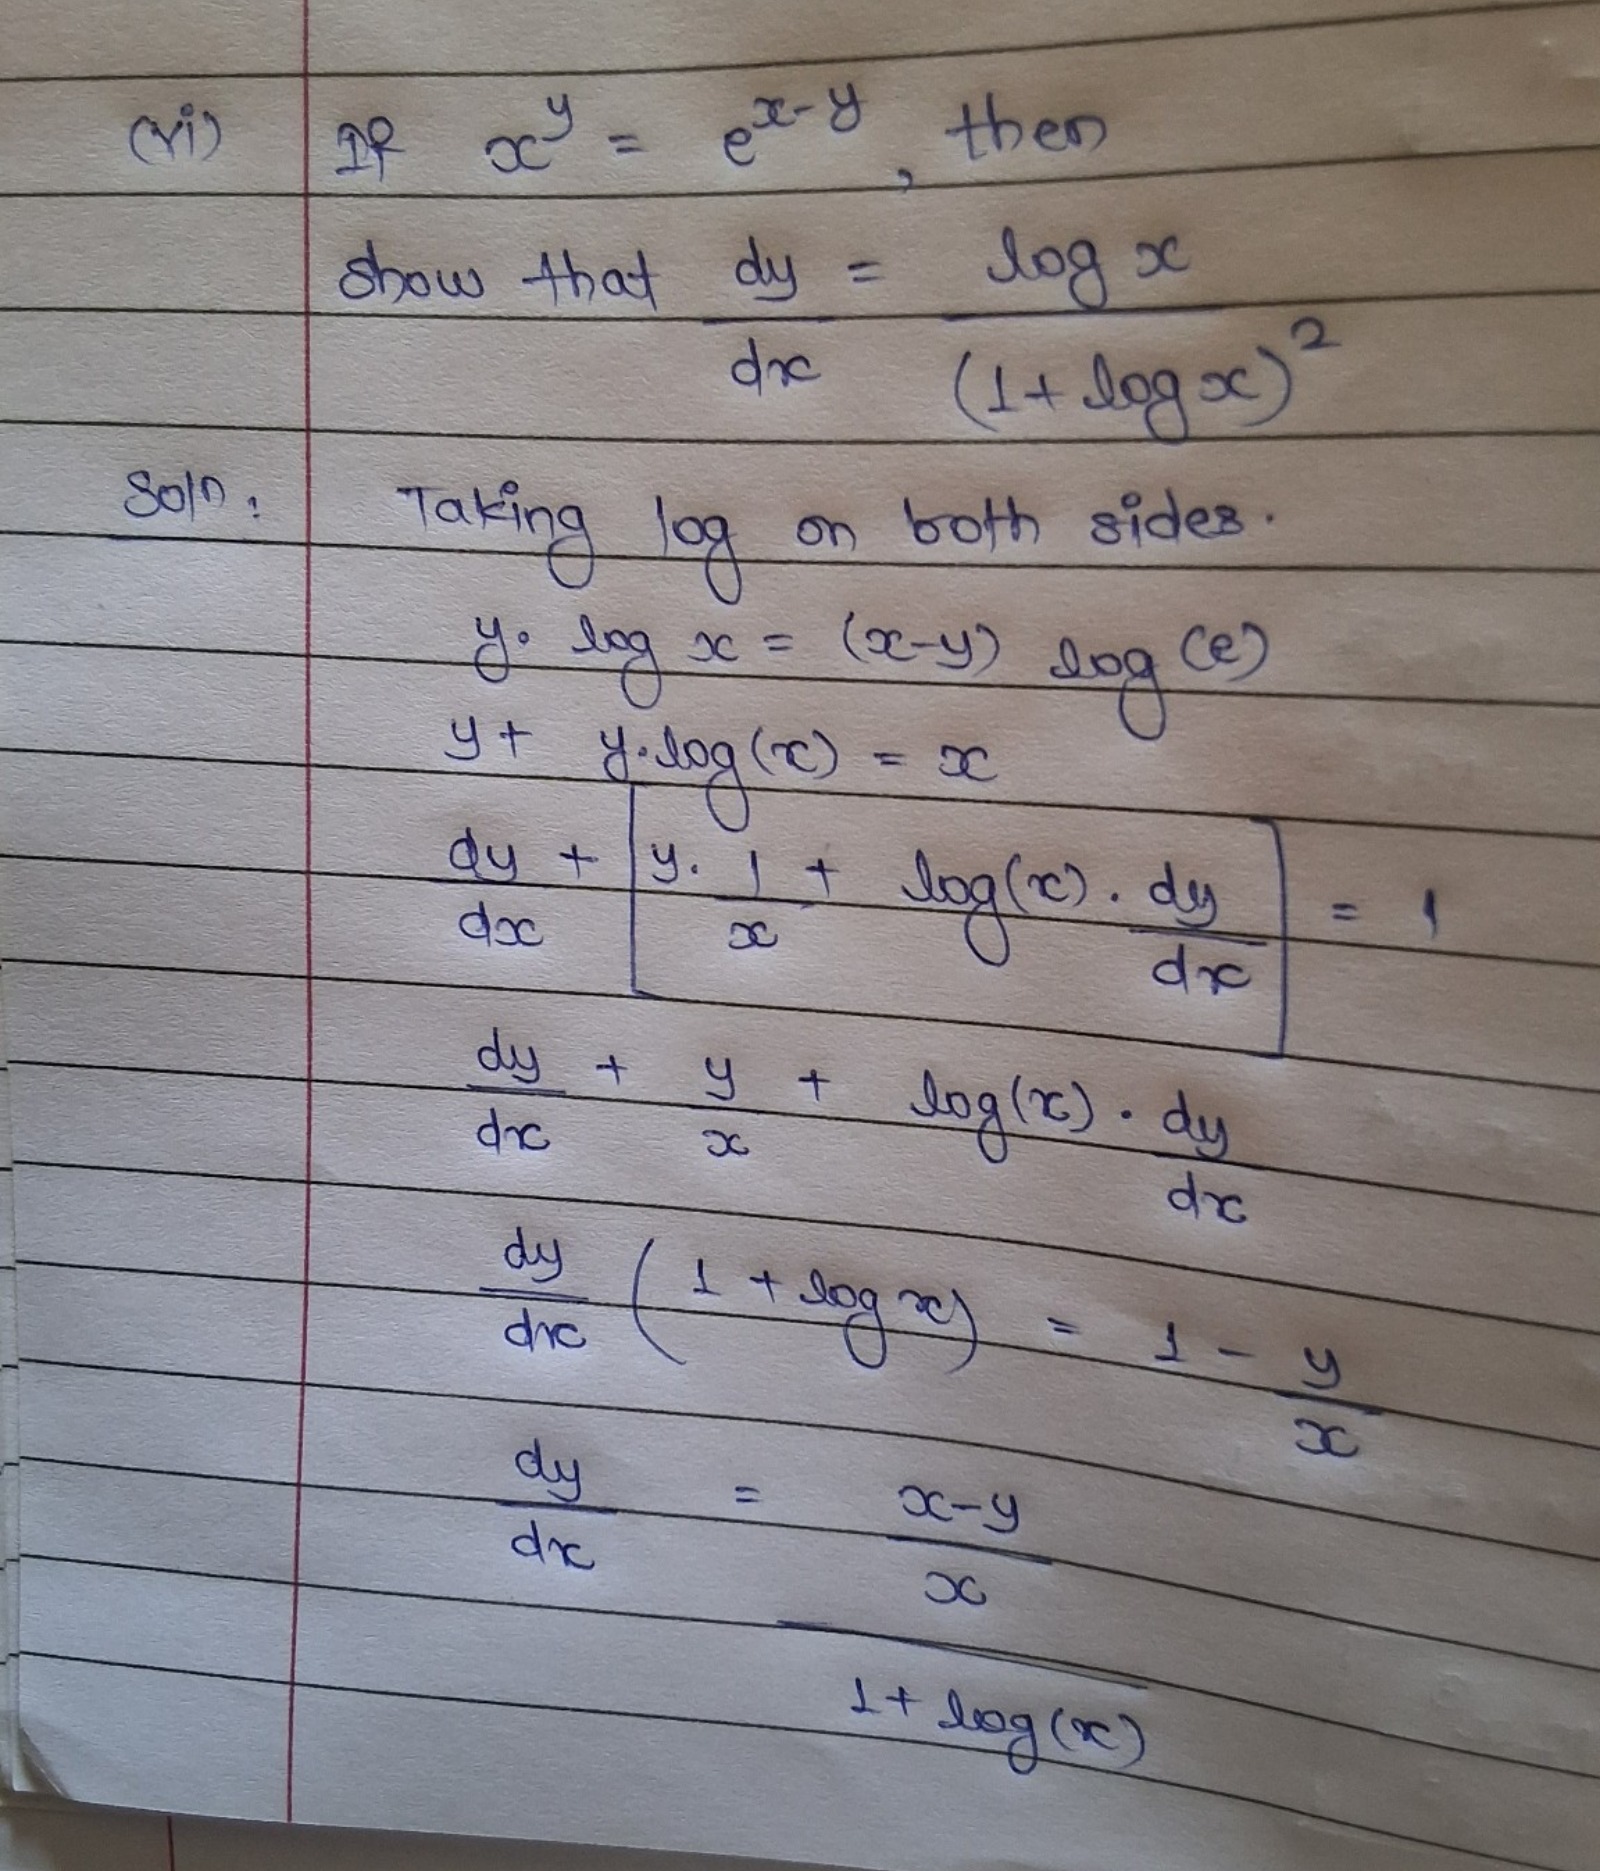 (vi) If x^y = e^{x-y}, then
show that dy/dx = log x / (1 + log x)^2
Soln: Taking log on both sides.
y. log x = (x-y) log (e)
y + y.log(x) = x
dy/dx + [y. 1/x + log(x). dy/dx] = 1
dy/dx + y/x + log(x). dy/dx
dy/dx (1 + log x) = 1 - y/x
dy/dx = ((x-y)/x) / (1 + log(x))